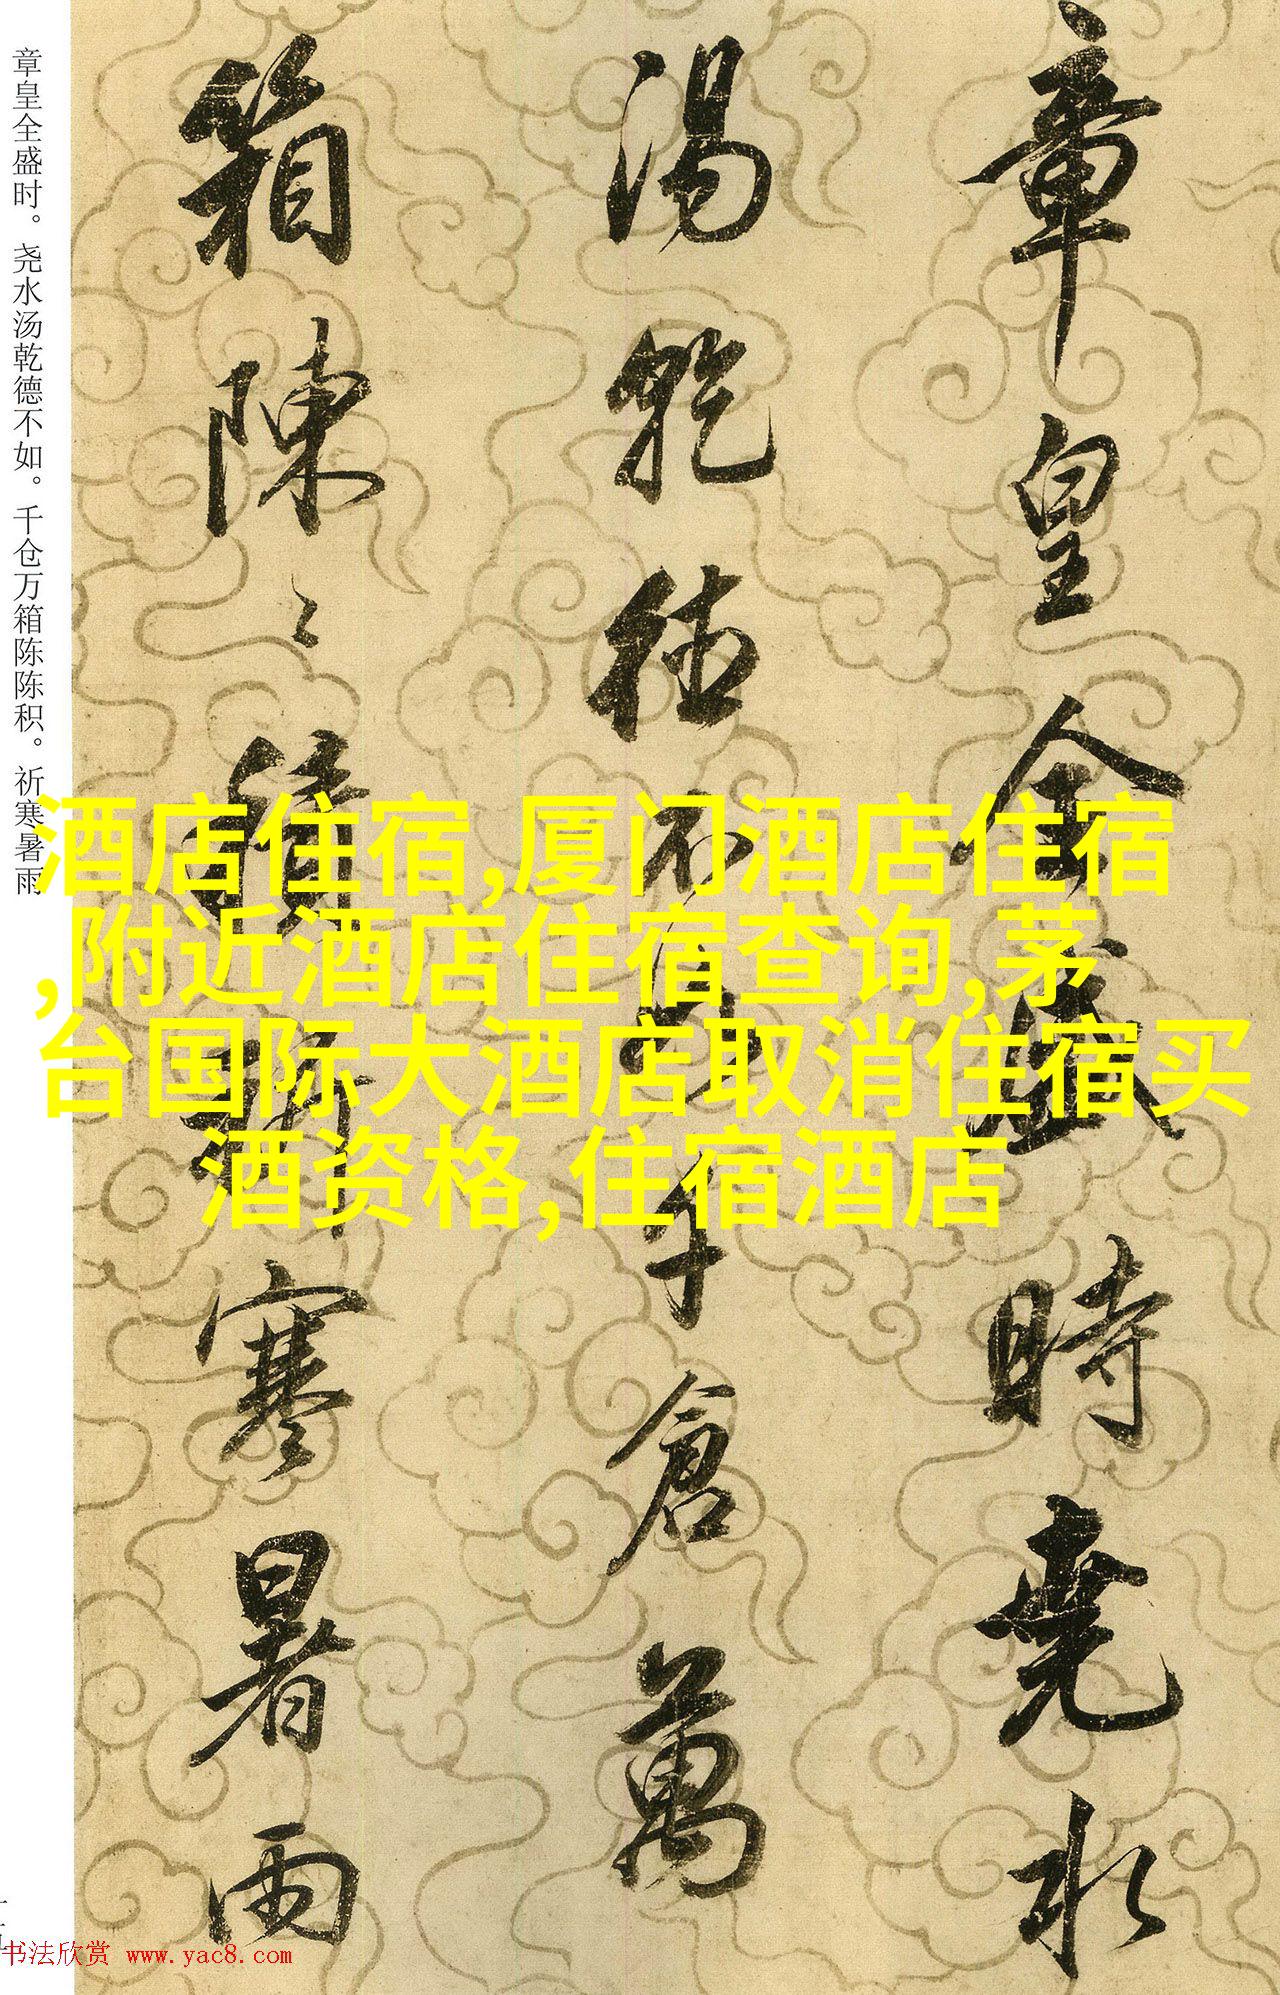 章皇全盛時堯水
湯乾德不如千倉萬
箱陳〻積祈寒暑雨
章皇全盛时。尧水汤乾德不如。千仓万箱陈陈积。祈寒暑雨
酒店住宿,厦门酒店住宿
,附近酒店住宿查询,茅
台国际大酒店取消住宿买
酒资格,住宿酒店
书法欣赏 www.yac8.com